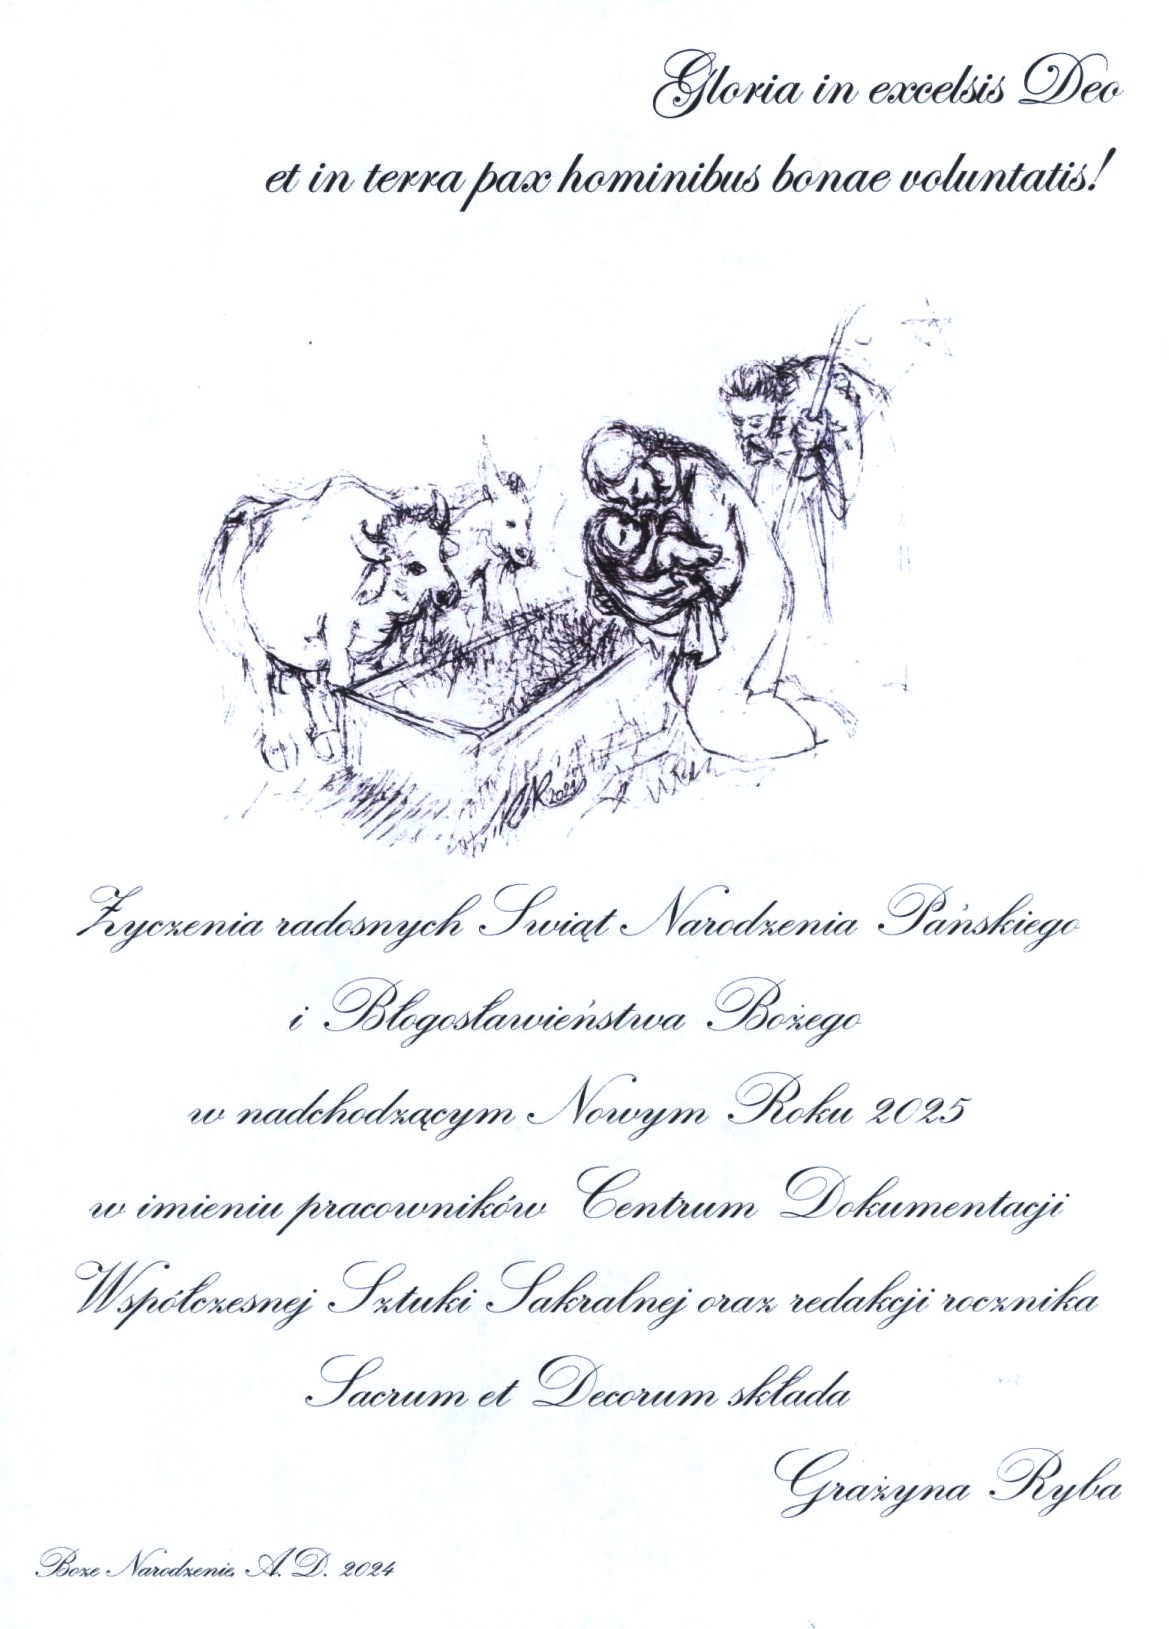 Gloria in excelsis Deo
et in terra pax hominibus bonae voluntatis!
GR 2024
Życzenia radosnych Swiąt Narodzenia Pańskiego
i Błogosławieństwa Bożego
w nadchodzącym Nowym Roku 2025
w imieniu pracowników Centrum Dokumentacji
Współczesnej Sztuki Sakralnej oraz redakcji rocznika
Sacrum et Decorum składa
Grażyna Ryba
Boze Narodzenie, A. D. 2024